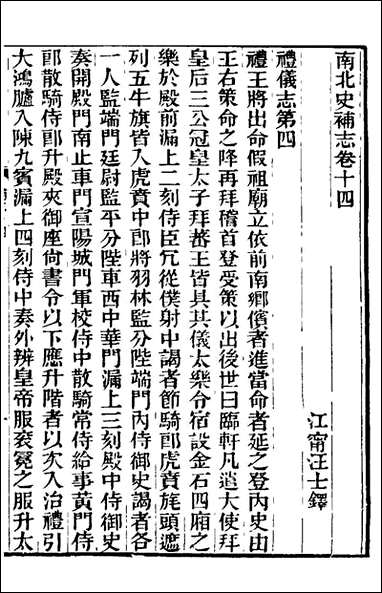 南北史補志卷十四
江甯汪士鐸
禮儀志第四
禮王將出命假祖廟立依前南鄉儐者進當命者延之登內史由
王右策命之降再拜稽首登受策以出後世曰臨軒凡遣大使拜
皇后三公冠皇太子拜蕃王皆具其儀太樂令宿設金石四廂之
樂於殿前漏上二刻侍臣冗從僕射中謁者節騎郎虎賁旄頭遮
列五牛旗皆入虎賁中郎將羽林監分陛端門內侍御史謁者各
一人監端門廷尉監平分陛車西中華門漏上三刻殿中侍御史
奏開殿門南止車門宣陽城門軍校侍中散騎常侍給事黃門侍
郎散騎侍郎升殿夾御座尙書令以下應升階者以次入治禮引
大鴻臚入陳九賓漏上四刻侍中奏外辦皇帝服袞冕之服升太